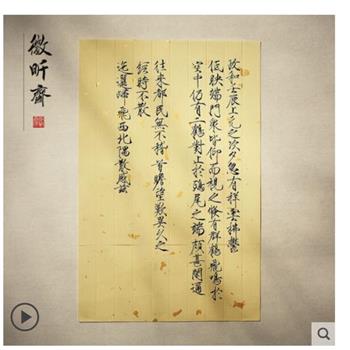 徽昕齋
政和壬辰上元之次夕忽有祥雲拂鬱
低映端門眾皆仰而視之倏有群鶴飛鳴於
空中仍有二鶴對止於鴟尾之端頗甚閒適
往來都民無不稽首瞻望歎異久之
經時不散
迤邐歸飛西北隅散感茲